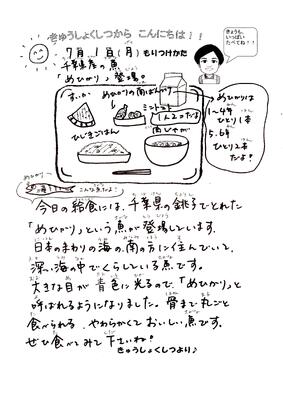 きゅうしょくしつから こんにちは!!
きょうも、
いっぱい
たべてね!!
7月 1日(月) もりつけかた
千葉県産の魚
「めひかり」登場。
すいか
めひかりの
ミニトマト
1人2コずつだよ
ひじきごはん
肉じゃが
めひかりは
1~4年
ひとり1本
5.6年
ひとり2本
だよ!
めひかり
こんな魚だよ!
今日の給食には、千葉県の銚子でとれた
「めひかり」という魚が登場しています。
日本のまわりの海の、南の方に住んでいて、
深い海の中でくらしている魚です。
大きな目が青色に光るので、「めひかり」と
呼ばれるようになりました。骨まで丸ごと
食べられる、やわらかくておいしい魚です。
ぜひ食べてみて下さいね!
きゅうしょくしつより♪